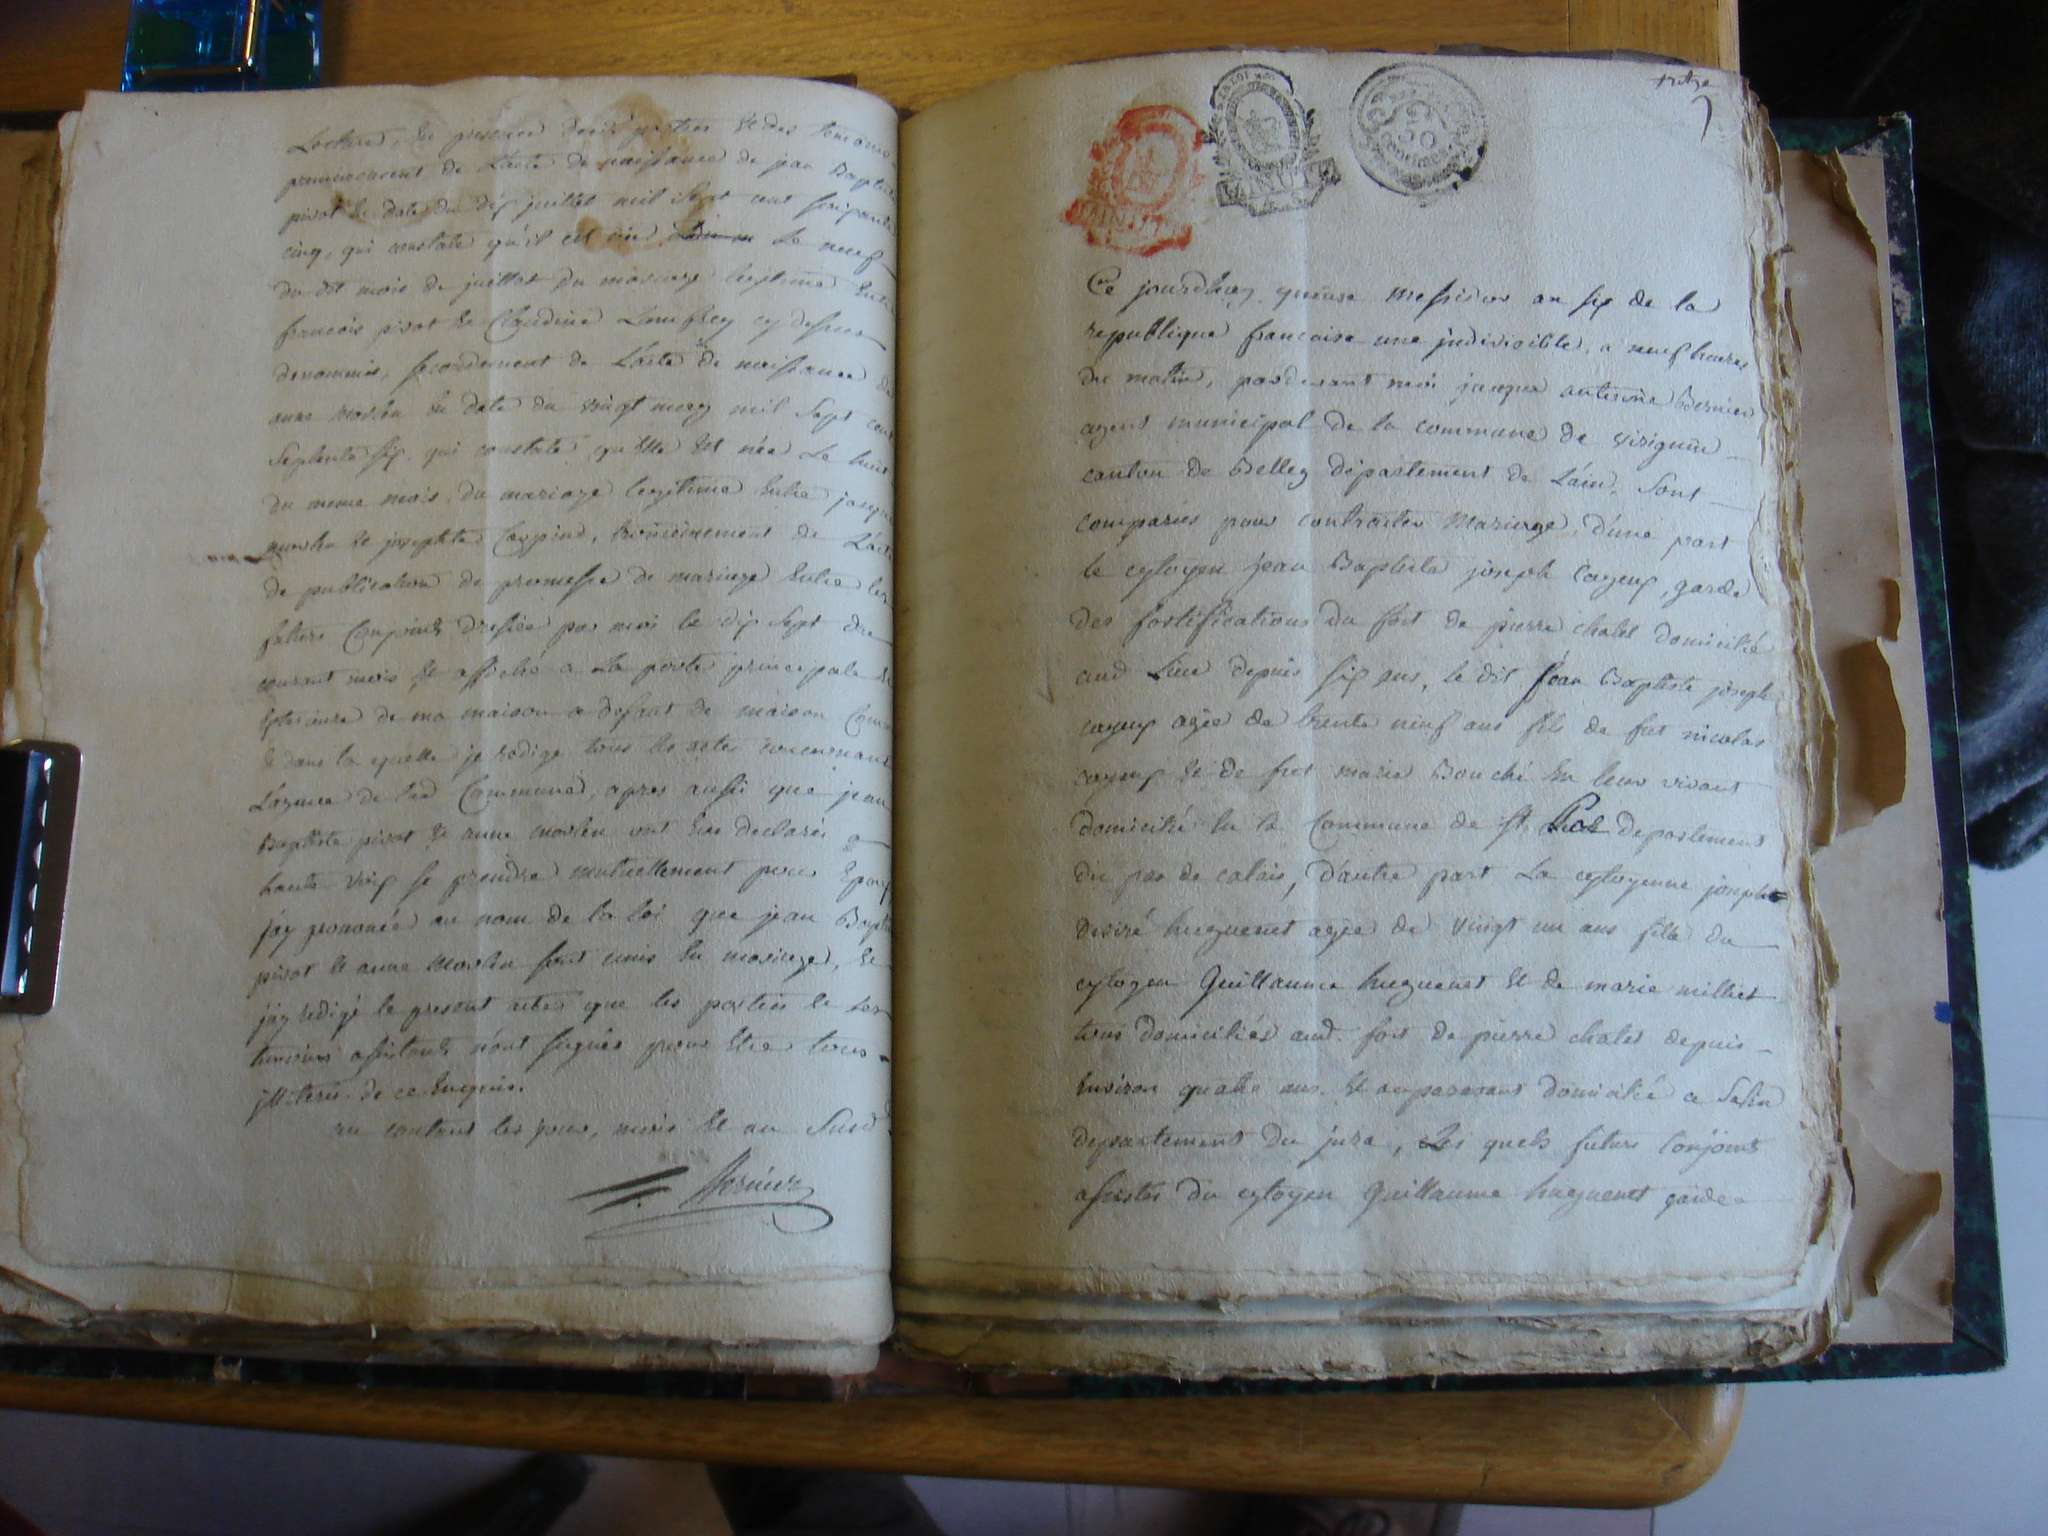 Lecture, En presence desd. parties Et des temoins
premierement de L'acte de naissance de jean Baptiste
pivot En date du dix juillet mil sept cent soixante
cinq, qui constate qu'il est né Le neuf
du dit mois de juillet du mariage legitime Entre
francois pivot Et Claudine cy dessus
denommés, secondement de L'acte de naissance de
anne En date du vingt mil sept cent
septente six qui constate qu'elle Est née Le
du meme mois, du mariage legitime Entre
Et josephte, troisiemement de L'acte
de publication de promesse de mariage Entre les
futurs Conjoints dressée par moi le dix sept du
courant mois Et affiché a La porte principale Et
de ma maison a defaut de maison Commune
Et dans la quelle je redige tous les actes concernant
de lad. Commune, apres aussi que jean
Baptiste pivot Et anne ont Eu declaré a
haute voix se prendre mutuellement pour Epoux
j'ay prononcé au nom de la loi que jean Baptiste
pivot Et anne sont unis En mariage, Et
j'ay redigé le present acte que les parties Et les
temoins assistants n'ont signés pour Etre tous
illiterés de ce Enquis.
les jour, mois Et an Susd.
Bernier
Ce jourd'huy quinze Messidor an six de la
republique francaise une indivisible, a neuf heures
du matin, pardevant moi jacque antoine Bernier
agent municipal de la commune de virignin
canton de Belley departement de L'ain, Sont
comparus pour contracter Mariage, d'une part
le cytoyen jean Baptiste joseph Cayeux, garde
des fortifications du fort de pierre chatel domicilié
aud Lieu depuis six ans, le dit jean Baptiste joseph
cayeux agée de trente neuf ans fils de fut nicolas
cayeux Et de fut marie Bouché En leur vivant
domicilié En la Commune de St. Pol departement
du pas de calais, d'autre part La cytoyenne josephte
desiré huguenet agée de vingt un ans fille du
cytoyen Guillaume huguenet Et de marie milliet
tous domiciliés aud. fort de pierre chatel depuis
Environ quatre ans. Et auparavant domicilié a Salin
departement du jura, Les quels futurs Conjoints
assistés du cytoyen Guillaume huguenet garde